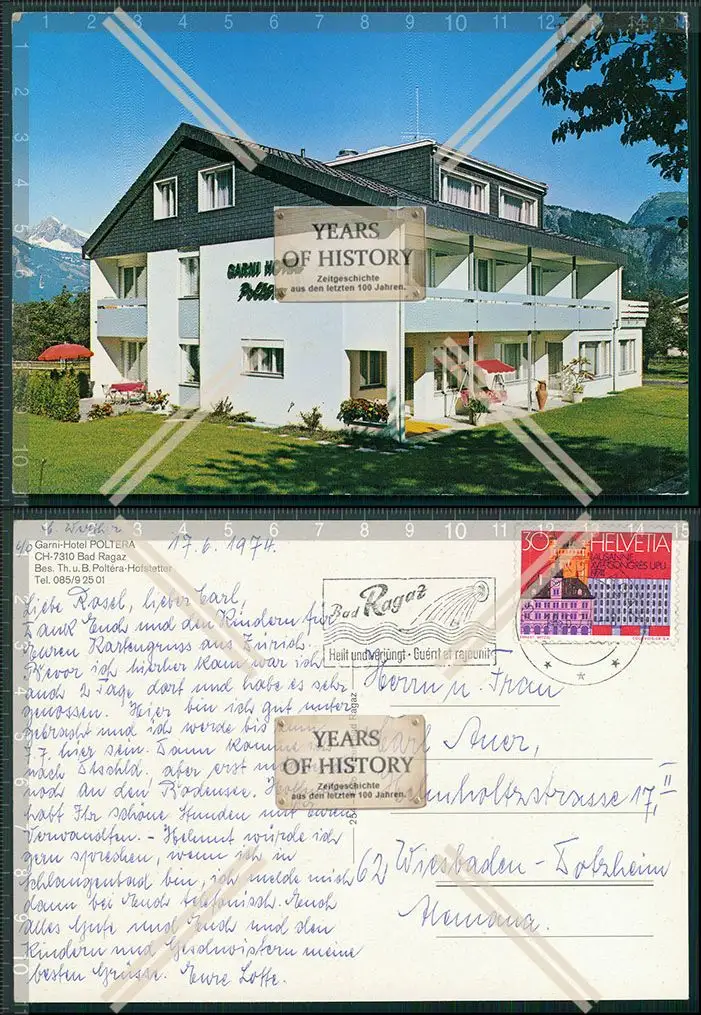 GARNI HOTEL
YEARS
OF HISTORY
Zeitgeschichte
aus den letzten 100 Jahren.
17.6.1974.
c/o Garni-Hotel POLTERA
CH-7310 Bad Ragaz
Bes. Th. u. B. Poltéra-Hofstetter
Tel. 085/9 25 01
Liebe Rosel, lieber Carl,
Dank Euch und den Kindern für
Euren Kartengruss aus Zürich.
Bevor ich hierher kam war ich
auch 2 Tage dort und habe es sehr
genossen. Hier bin ich gut unter
gebracht und ich werde bis zum
7.7. hier sein. Dann komme ich
nach Dtschld, aber erst
noch an den Bodensee.
habt Ihr schöne Stunden mit Euren
Verwandten. - Helmut würde ich
gern sprechen, wenn ich in
Schlangenbad bin, ich melde mich
dann bei Euch telefonisch. Euch
alles Gute und Euch und den
Kindern und Geschwistern meine
besten Grüsse. Eure Lotte.
Bad Ragaz
Heilt und verjüngt · Guérit et rajeunit
30 HELVETIA
LAUSANNE
XVIIe CONGRÈS UPU
1974
Herrn u. Frau
Carl Auer,
Helmholtzstrasse 17, II
62 Wiesbaden-Dotzheim
Alemana.
Bad Ragaz
YEARS
OF HISTORY
Zeitgeschichte
aus den letzten 100 Jahren.